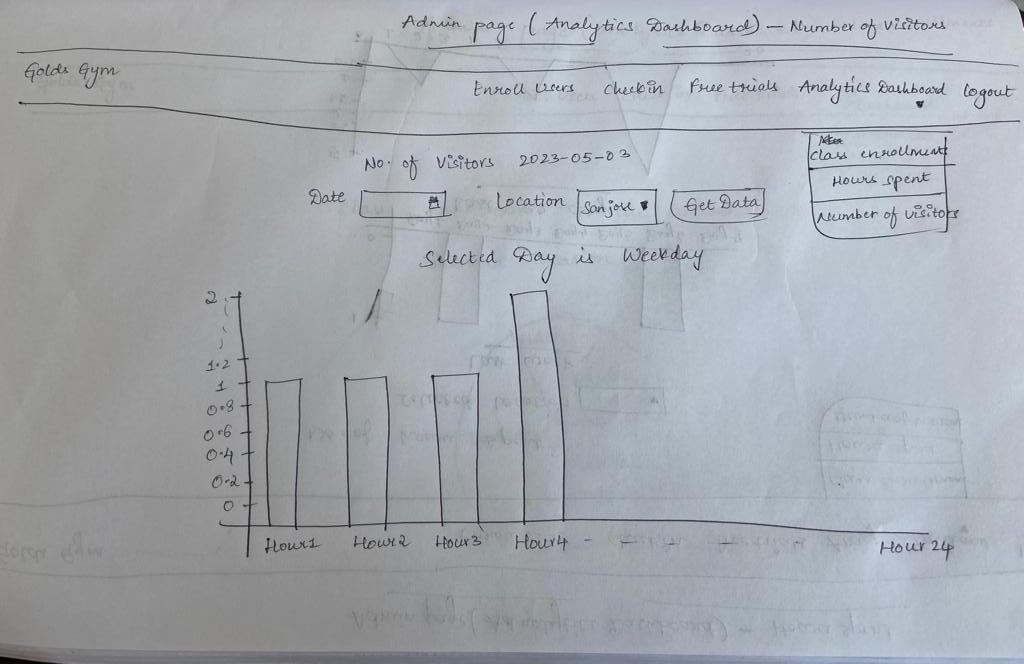 Admin page (Analytics Dashboard) – Number of Visitors
Golds Gym
Enroll Users checkin Free trials Analytics Dashboard logout
class enrollment
Hours spent
Number of visitors
No. of Visitors 2023-05-03
Date Location Sanjose Get Data
Selected Day is Weekday
2
1.2
1
0.8
0.6
0.4
0.2
0
Hour1 Hour2 Hour3 Hour4 - - - - Hour 24